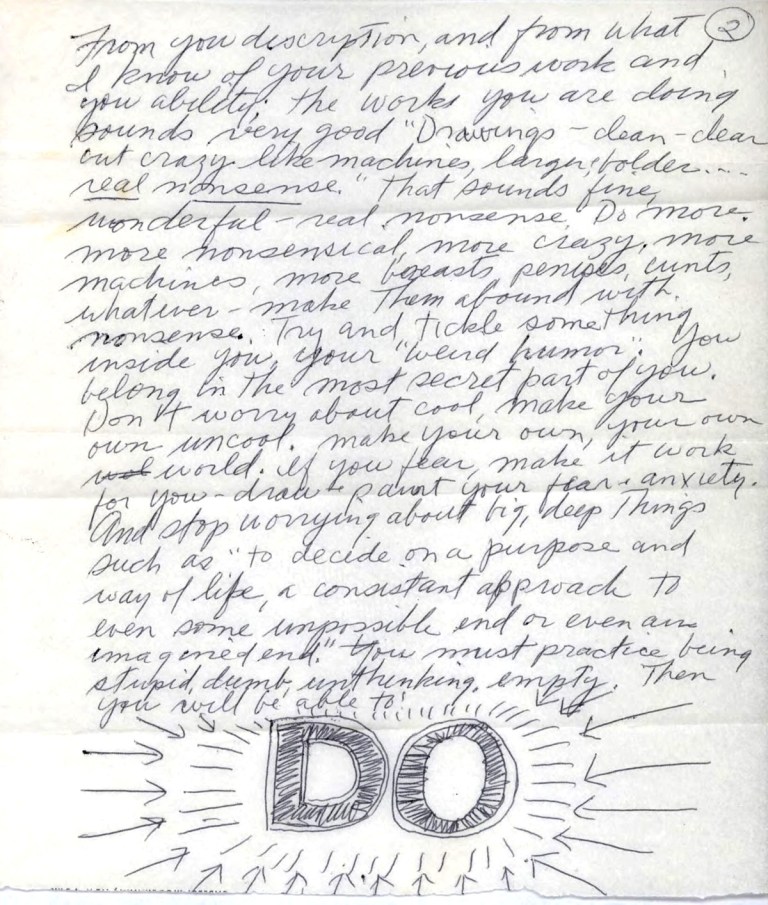 2
From you description, and from what
I know of your previous work and
you ability; the works you are doing
sounds very good "Drawings - clean - clear
cut crazy like machines, larger, bolder....
real nonsense." That sounds fine,
wonderful - real nonsense. Do more.
more nonsensical, more crazy, more
machines, more breasts, penises, cunts,
whatever - make them abound with
nonsense. Try and tickle something
inside you, your "weird humor". You
belong in the most secret part of you.
Don't worry about cool, make your
own uncool. make your own, your own
world. If you fear, make it work
for you - draw + paint your fear + anxiety.
And stop worrying about big, deep things
such as "to decide on a purpose and
way of life, a consistant approach to
even some unpossible end or even an
imagined end." You must practice being
stupid, dumb, unthinking, empty. Then
you will be able to
DO